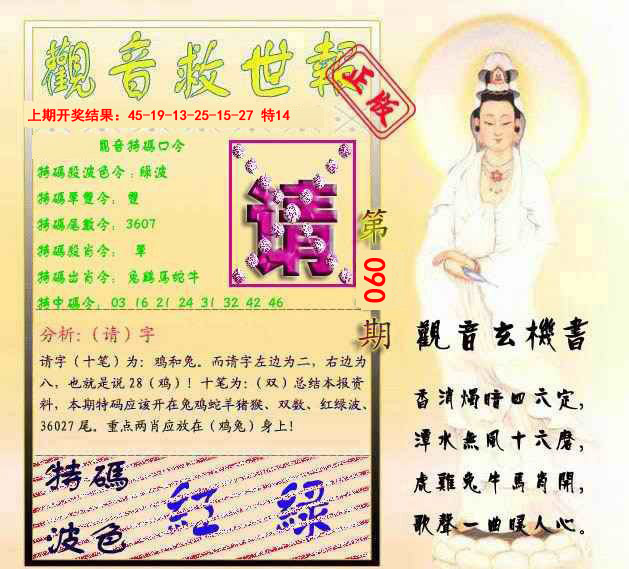 觀音救世報
正版
上期开奖结果: 45-19-13-25-15-27 特14
觀音特碼口令
特碼段波色令:綠波
特碼單雙令: 雙
特碼尾數令: 3607
特碼段肖令: 單
特碼出肖令: 兔鷄馬蛇牛
特中碼令: 03 16 21 24 31 32 42 46
请
第
090
期
分析:(请)字
请字(十笔)为: 鸡和兔。而请字左边为二, 右边为
八, 也就是说 28(鸡)! 十笔为:(双)总结本报资
料, 本期特码应该开在兔鸡蛇羊猪猴、双数、红绿波、
36027 尾。重点两肖应放在(鸡兔)身上!
特碼
波色
红 绿
觀音玄機書
香消燭暗四六定,
潭水無風十六磨,
虎雞兔牛馬肖開,
歌聲一曲暖人心。